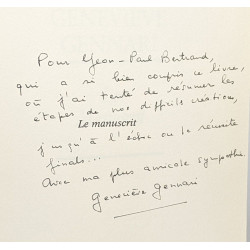 Pour Jean-Paul Bertrand,
qui a si bien compris ce livre,
où j'ai tenté de résumer les
étapes de nos difficiles créations,
Le manuscrit
jusqu'à l'échec ou la réussite
finale...
Avec ma plus amicale sympathie.
Geneviève Gennari